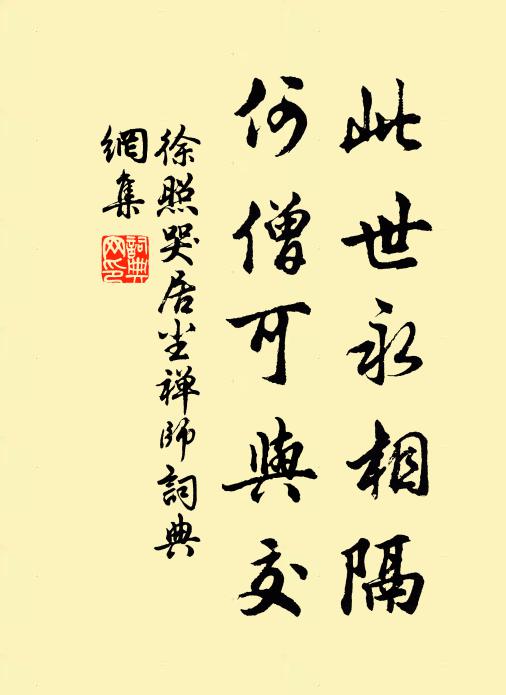 此世永相隔
何僧可與交
徐照哭居塵禪師詞典
網集
詞典
网印